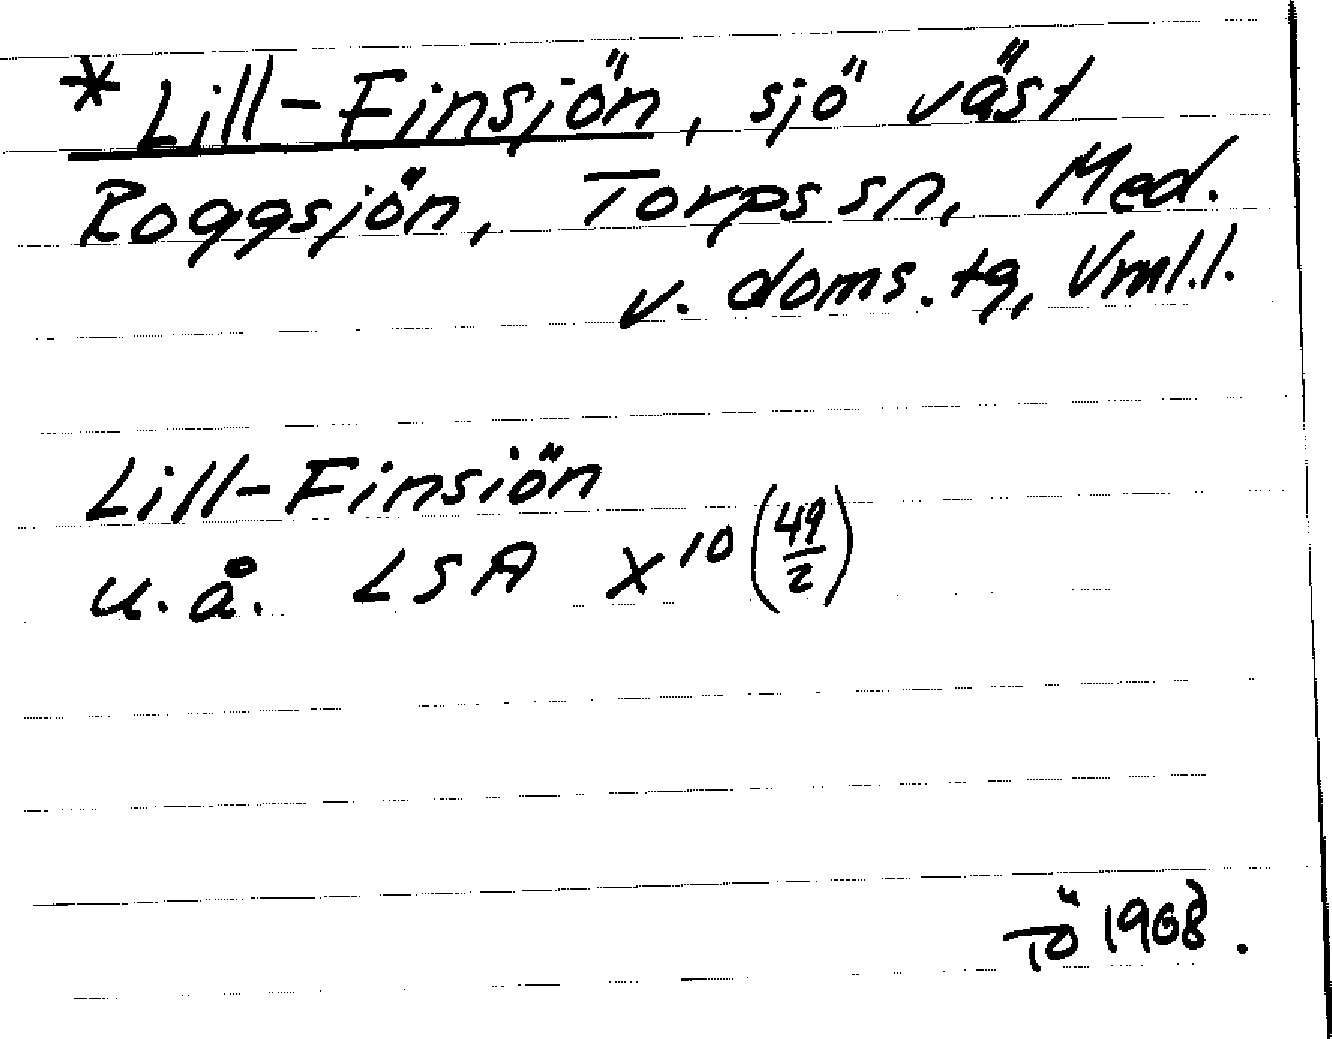 * Lill-Finsjön, sjö väst
Roggsjön, Torps sn, Med.
v. doms. tg, Vml.l.
Lill-Finsiön
u.å. LSA X¹⁰ (49/2)
TÖ 1968.